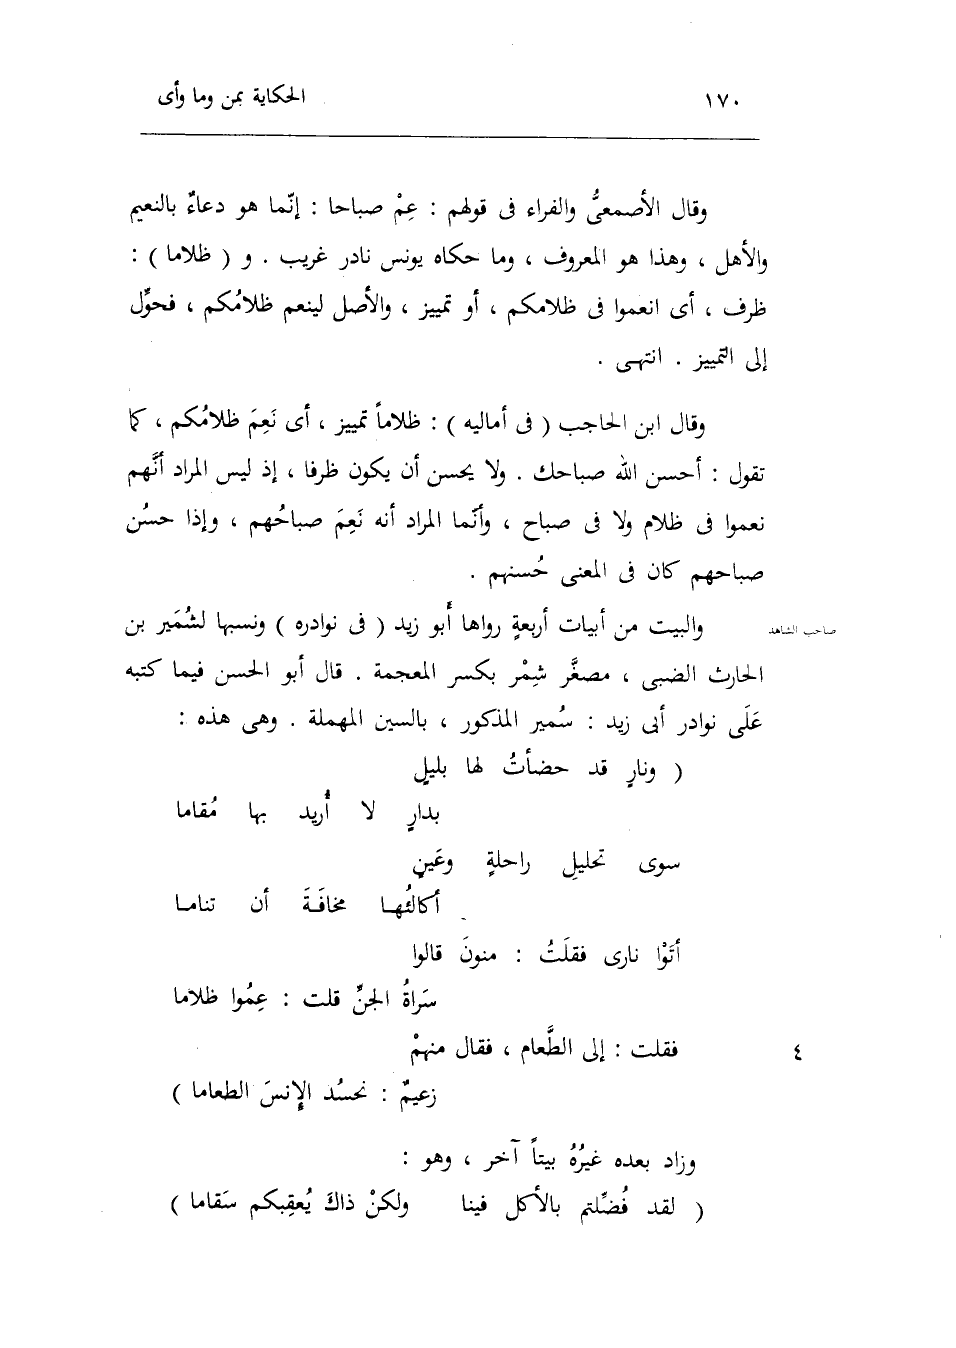 ١٧٠ الحكاية بمن وما وأى
وقال الأصمعىُّ والفراء فى قولهم : عِمْ صباحا : إنّما هو دعاءٌ بالنعيم
والأهل ، وهذا هو المعروف ، وما حكاه يونس نادر غريب . و ( ظلاما ) :
ظرف ، أى انعموا فى ظلامكم ، أو تمييز ، والأصل لينعم ظلامُكم ، فحوِّل
إلى التمييز . انتهى .
وقال ابن الحاجب ( فى أماليه ) : ظلاماً تمييز ، أى نَعِمَ ظلامُكم ، كما
تقول : أحسن الله صباحك . ولا يحسن أن يكون ظرفا ، إذ ليس المراد أنَّهم
نعموا فى ظلام ولا فى صباح ، وأنّما المراد أنه نَعِمَ صباحُهم ، وإذا حسُن
صباحهم كان فى المعنى حُسنهم .
صاحب الشاهد
والبيت من أبيات أربعةٍ رواها أبو زيد ( فى نوادره ) ونسبها لشُمَير بن
الحارث الضبى ، مصغَّر شِمْر بكسر المعجمة . قال أبو الحسن فيما كتبه
عَلَى نوادر أبى زيد : سُمير المذكور ، بالسين المهملة . وهى هذه :
( ونارٍ قد حضأتُ لها بليلٍ
بدارٍ لا أُريد بها مُقاما
سوى تحليلِ راحلةٍ وعَينٍ
أكالئُهـا مخافَـةَ أن تنامـا
أتَوْا نارى فقلَتُ : منونَ قالوا
سَراةُ الجنِّ قلت : عِمُوا ظلاما
فقلت : إلى الطَّعام ، فقال منهمْ ٤
زعيمٌ : نحسُد الإِنسَ الطعاما )
وزاد بعده غيرُهُ بيتاً آخر ، وهو :
( لقد فُضِّلتم بالأكل فينا ولكنْ ذاكَ يُعقِبكم سَقاما )